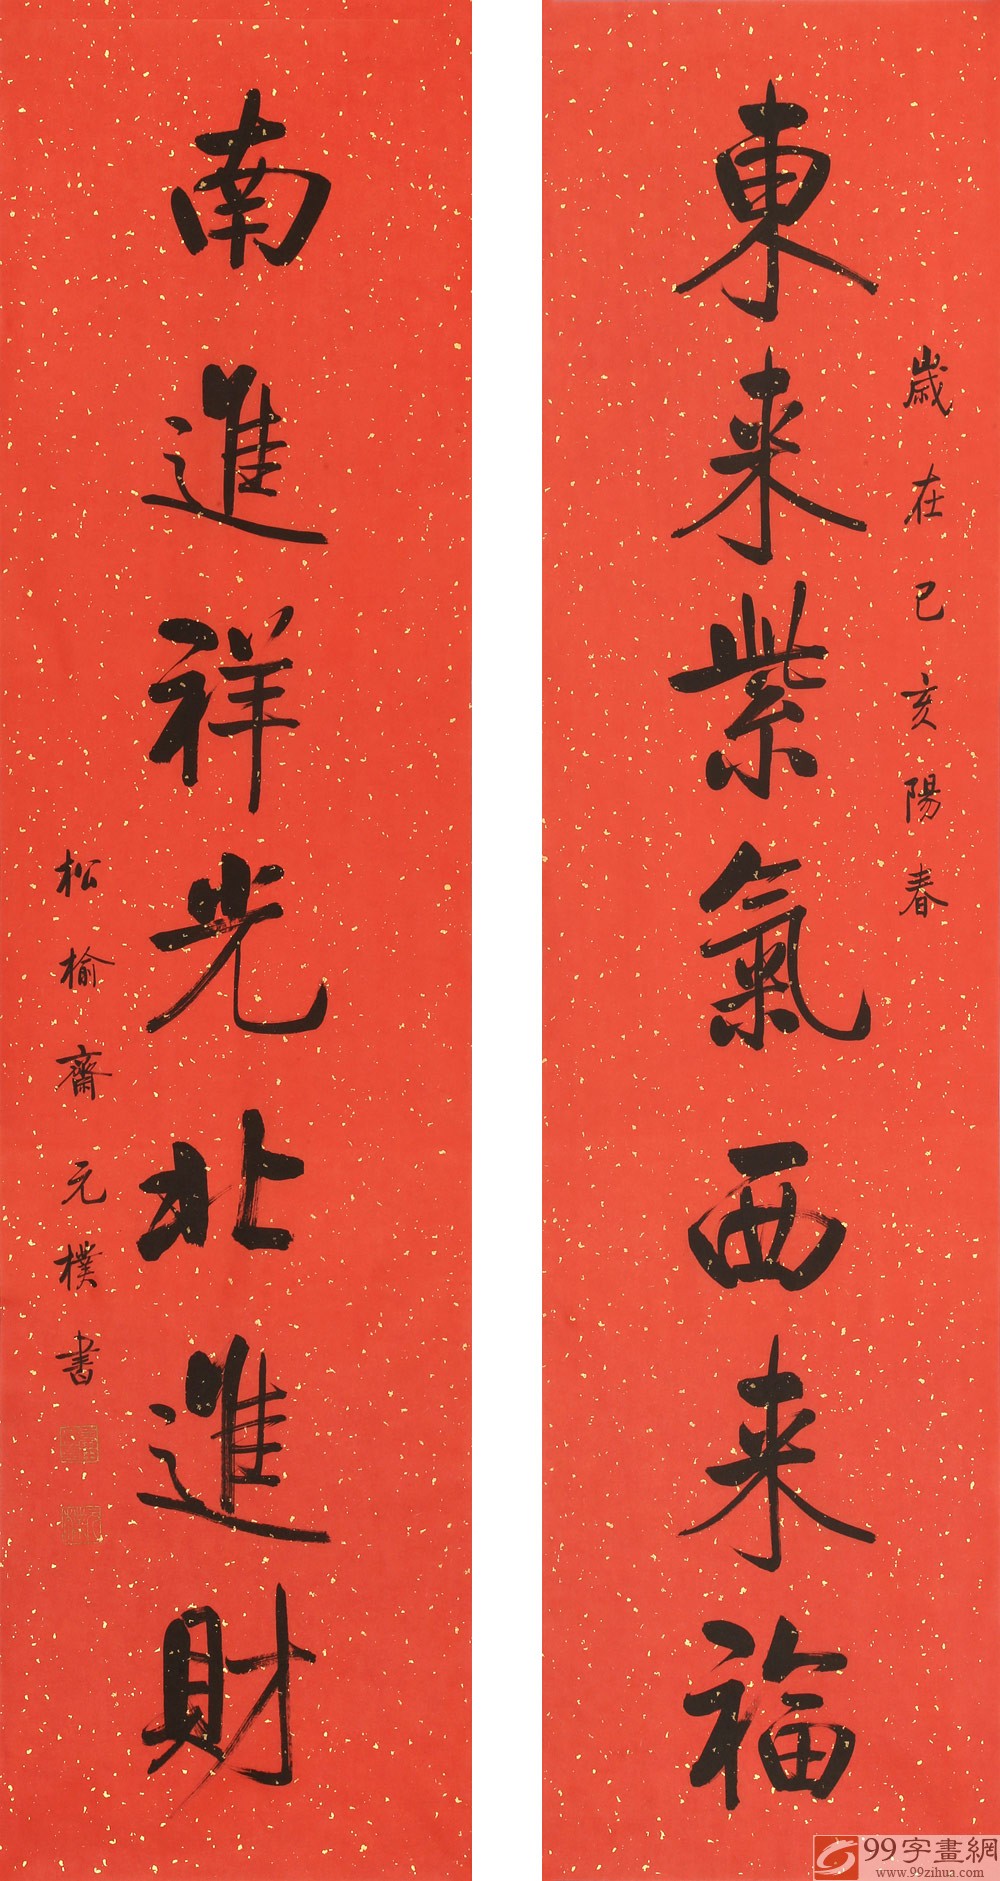 歲在己亥陽春
東来紫氣西来福
南進祥光北進財
松榆齋元樸書
99字畫網
www.99zihua.com